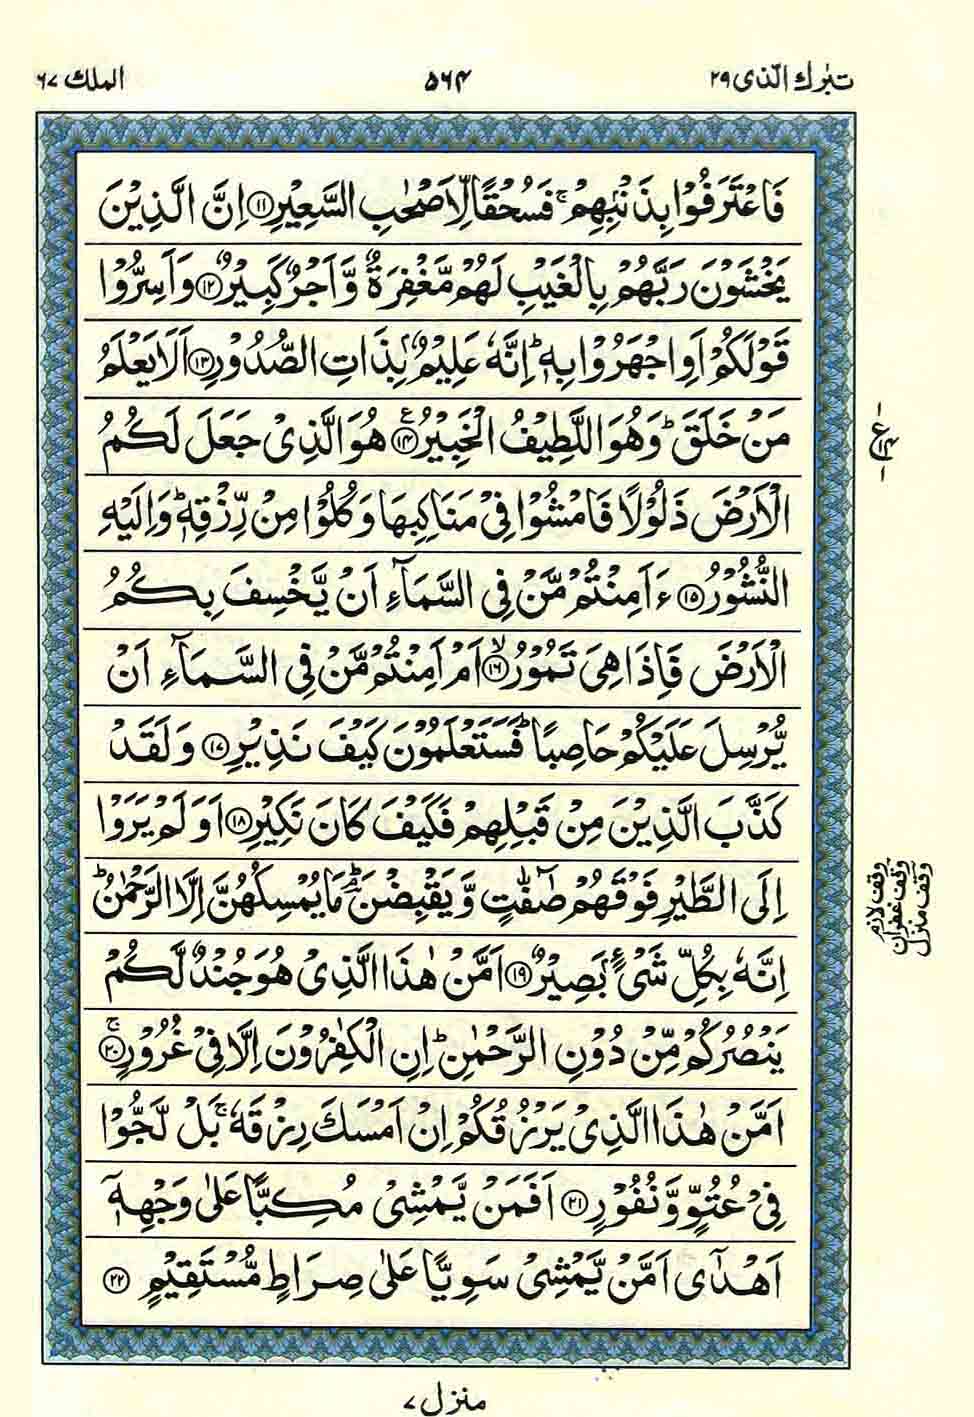 تبٰرك الّذى ٢٩
۵۶۴
الملك ٦٧
فَاعْتَرَفُوْا بِذَنْۢبِهِمْ ۚ فَسُحْقًا لِّاَصْحٰبِ السَّعِيْرِ ۝١١ اِنَّ الَّذِيْنَ
يَخْشَوْنَ رَبَّهُمْ بِالْغَيْبِ لَهُمْ مَّغْفِرَةٌ وَّ اَجْرٌ كَبِيْرٌ ۝١٢ وَ اَسِرُّوْا
قَوْلَكُمْ اَوِ اجْهَرُوْا بِهٖ ؕ اِنَّهٗ عَلِيْمٌۢ بِذَاتِ الصُّدُوْرِ ۝١٣ اَلَا يَعْلَمُ
مَنْ خَلَقَ ؕ وَ هُوَ اللَّطِيْفُ الْخَبِيْرُ ۝١٤ هُوَ الَّذِىْ جَعَلَ لَكُمُ
الْاَرْضَ ذَلُوْلًا فَامْشُوْا فِىْ مَنَاكِبِهَا وَ كُلُوْا مِنْ رِّزْقِهٖ ؕ وَ اِلَيْهِ
النُّشُوْرُ ۝١٥ ءَاَمِنْتُمْ مَّنْ فِى السَّمَآءِ اَنْ يَّخْسِفَ بِكُمُ
الْاَرْضَ فَاِذَا هِىَ تَمُوْرُ ۙ۝١٦ اَمْ اَمِنْتُمْ مَّنْ فِى السَّمَآءِ اَنْ
يُّرْسِلَ عَلَيْكُمْ حَاصِبًا ؕ فَسَتَعْلَمُوْنَ كَيْفَ نَذِيْرِ ۝١٧ وَ لَقَدْ
كَذَّبَ الَّذِيْنَ مِنْ قَبْلِهِمْ فَكَيْفَ كَانَ نَكِيْرِ ۝١٨ اَوَ لَمْ يَرَوْا
اِلَى الطَّيْرِ فَوْقَهُمْ صٰٓفّٰتٍ وَّ يَقْبِضْنَ ؔۘؕ مَا يُمْسِكُهُنَّ اِلَّا الرَّحْمٰنُ ؕ
اِنَّهٗ بِكُلِّ شَىْءٍۭ بَصِيْرٌ ۝١٩ اَمَّنْ هٰذَا الَّذِىْ هُوَ جُنْدٌ لَّكُمْ
يَنْصُرُكُمْ مِّنْ دُوْنِ الرَّحْمٰنِ ؕ اِنِ الْكٰفِرُوْنَ اِلَّا فِىْ غُرُوْرٍ ۚ۝٢٠
اَمَّنْ هٰذَا الَّذِىْ يَرْزُقُكُمْ اِنْ اَمْسَكَ رِزْقَهٗ ۚ بَلْ لَّجُّوْا
فِىْ عُتُوٍّ وَّ نُفُوْرٍ ۝٢١ اَفَمَنْ يَّمْشِىْ مُكِبًّا عَلٰى وَجْهِهٖۤ
اَهْدٰٓى اَمَّنْ يَّمْشِىْ سَوِيًّا عَلٰى صِرَاطٍ مُّسْتَقِيْمٍ ۝٢٢
وقف لازم
وقف غفران
وقف منزل
منزل ٧